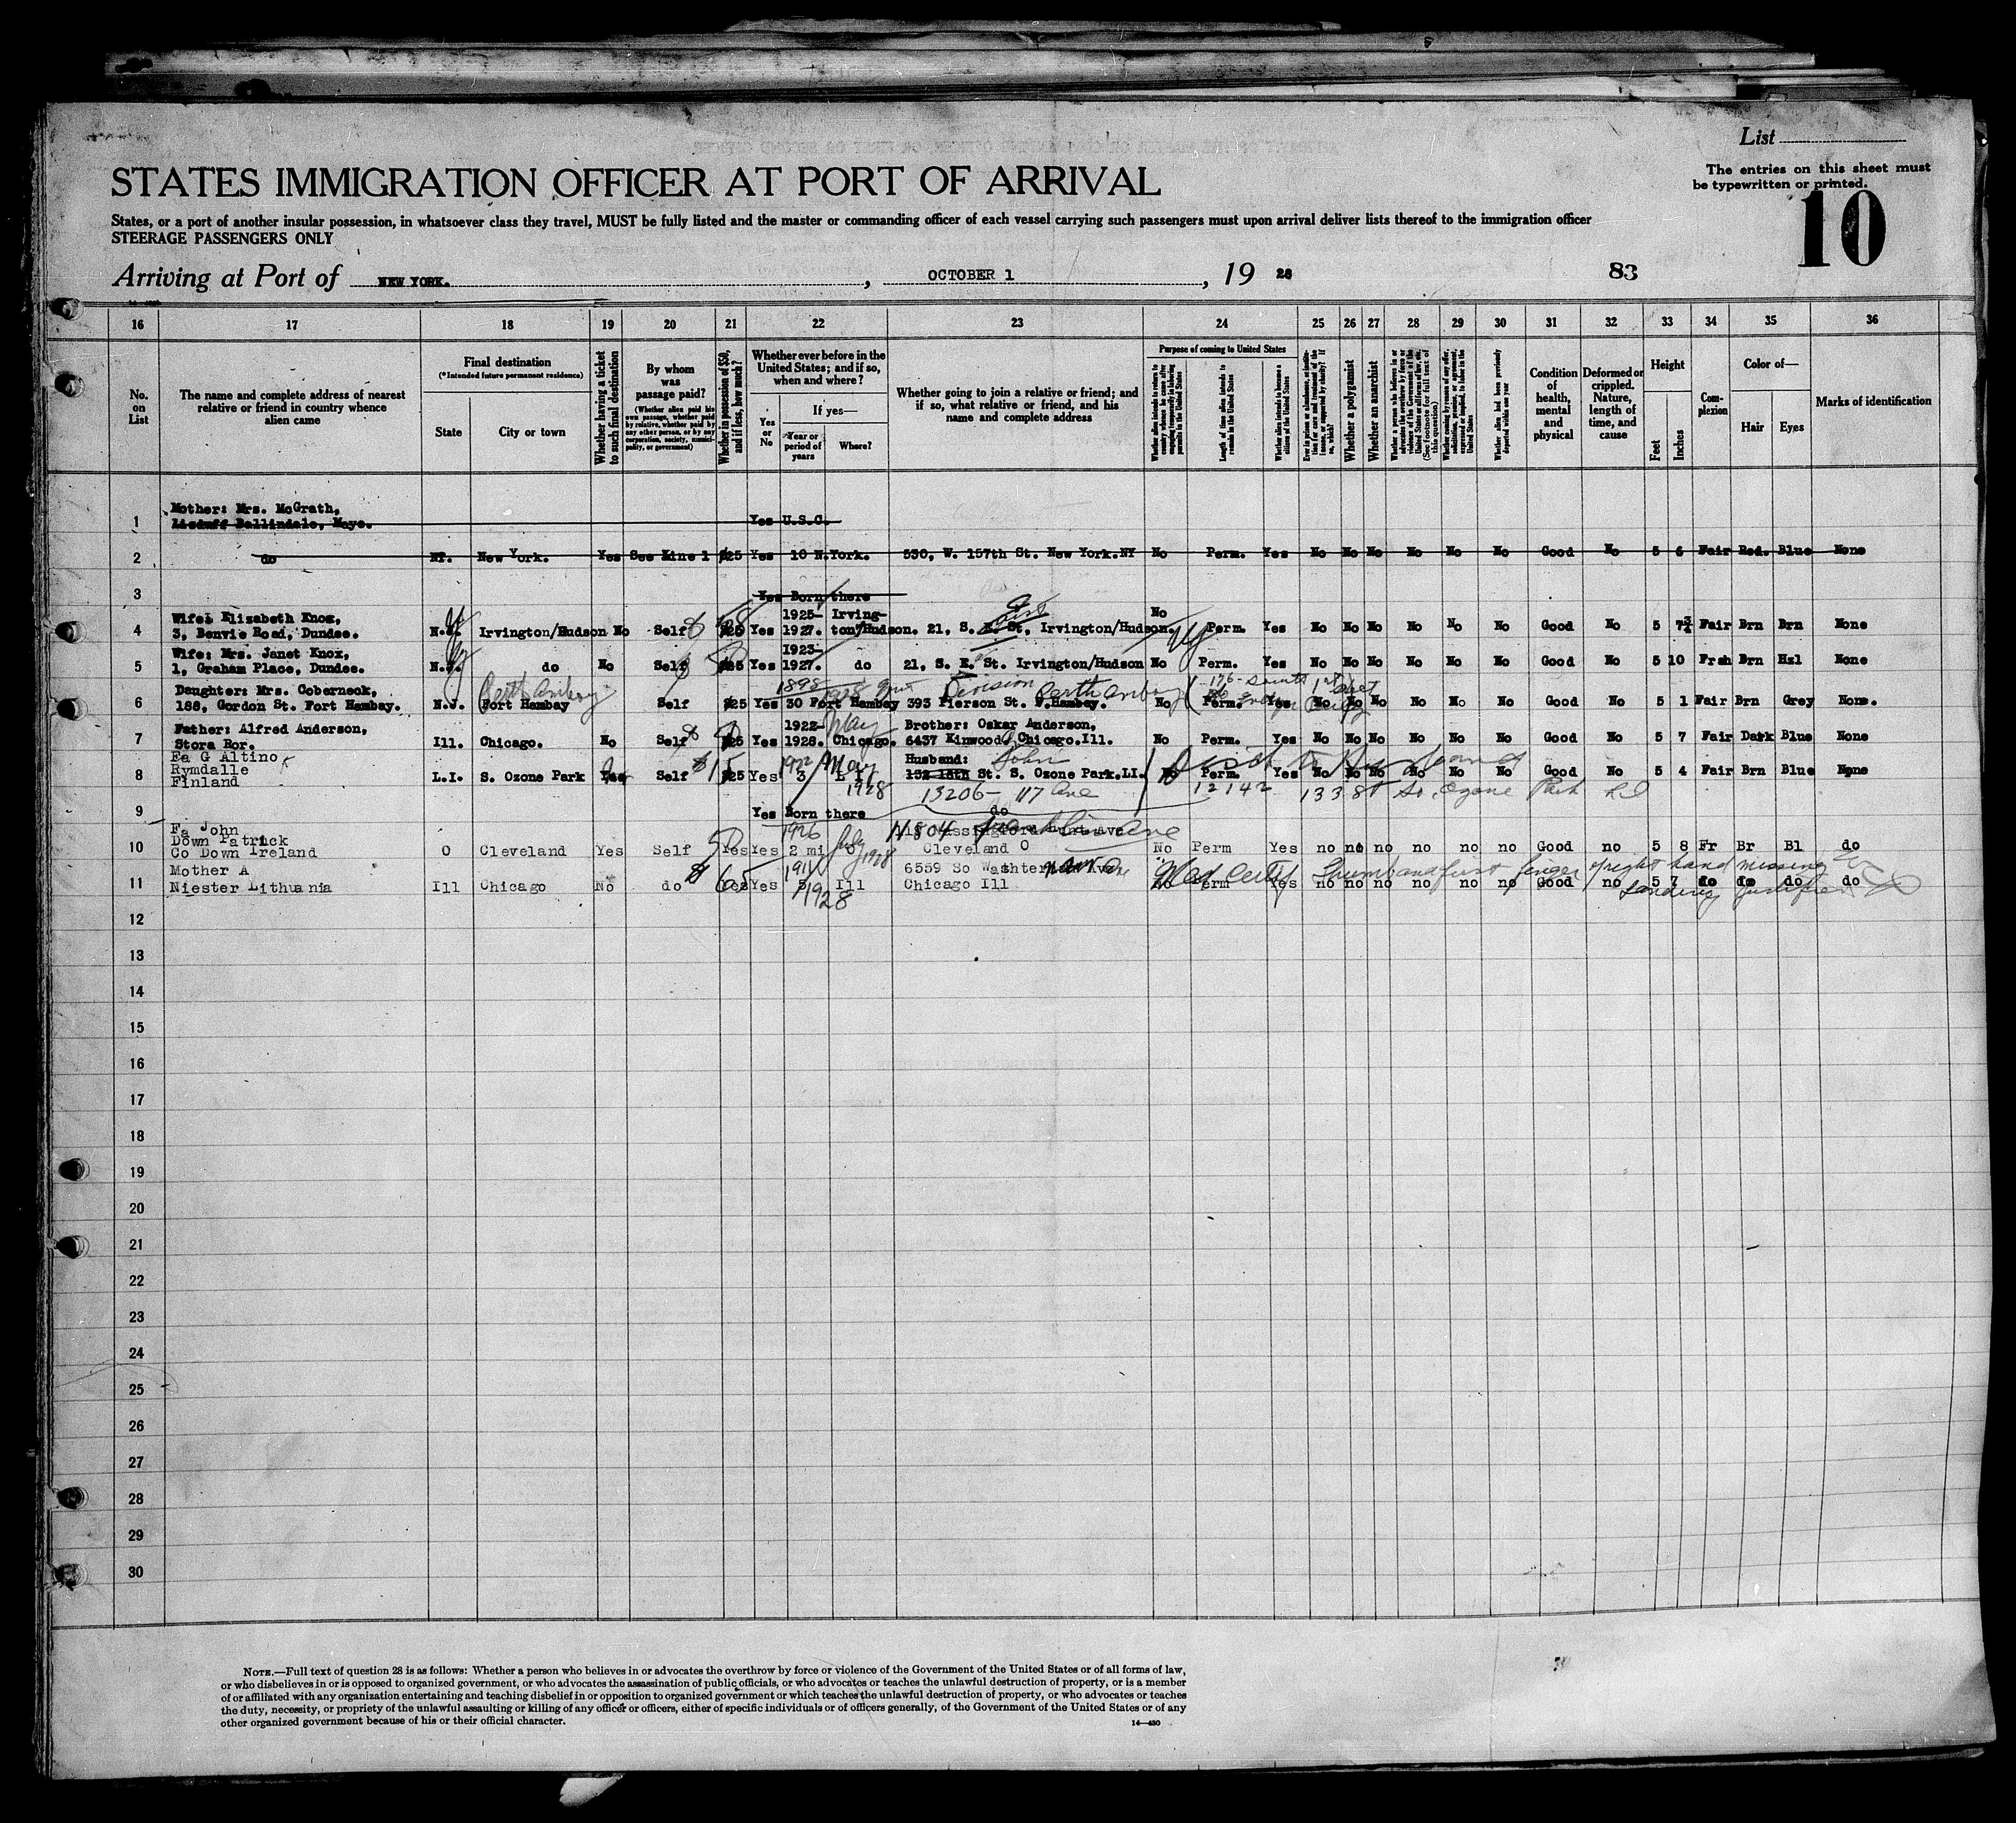 List
The entries on this sheet must
be typewritten or printed.
STATES IMMIGRATION OFFICER AT PORT OF ARRIVAL
10
States, or a port of another insular possession, in whatsoever class they travel, MUST be fully listed and the master or commanding officer of each vessel carrying such passengers must upon arrival deliver lists thereof to the immigration officer
STEERAGE PASSENGERS ONLY
Arriving at Port of NEW YORK. , OCTOBER 1 , 19 28 83
16 17 18 19 20 21 22 23 24 25 26 27 28 29 30 31 32 33 34 35 36
No. on List
The name and complete address of nearest relative or friend in country whence alien came
Final destination
(*Intended future permanent residence)
State
City or town
Whether having a ticket to such final destination
By whom was passage paid?
(Whether alien paid his own passage, whether paid by relative, whether paid by any other person, or by any corporation, society, municipality, or government)
Whether in possession of $50, and if less, how much?
Whether ever before in the United States; and if so, when and where?
Yes or No
If yes—
Year or period of years
Where?
Whether going to join a relative or friend; and if so, what relative or friend, and his name and complete address
Purpose of coming to United States
Length of time alien intends to remain in the United States
Whether alien intends to become a citizen of the United States
Whether a polygamist
Whether an anarchist
(See footnote for full text of this question)
Whether alien had been previously deported within one year
Condition of health, mental and physical
Deformed or crippled. Nature, length of time, and cause
Height
Feet
Inches
Complexion
Color of—
Hair
Eyes
Marks of identification
Mother: Mrs. McGrath,
1 Ballindale, Mayo. Yes U.S.C.
2 do NY. New York. Yes See Line 1 $25 Yes 10 N.York. 530, W. 157th St. New York.NY No Perm. Yes No No No No No No Good No 5 6 Fair Red. Blue None
3 Yes Born there
Wife: Elizabeth Knox, 1925- Irving- No
4 3, Benvie Road, Dundee. N.J. Irvington/Hudson No Self $25 Yes 1927. ton/Hudson. 21, S. E. St, Irvington/Hudson. Perm. Yes No No No No No No Good No 5 7¾ Fair Brn Brn None
Wife: Mrs. Janet Knox, 1923-
5 1, Graham Place, Dundee. do No Self $25 Yes 1927. do 21, S. E. St. Irvington/Hudson No Perm. Yes No No No No No No Good No 5 10 Frsh Brn Hzl None
Daughter: Mrs. Coberneck, Perth Amboy 1898 1928 Division Perth Amboy
6 188, Gordon St. Fort Hambay. N.J. Fort Hambay Self $25 Yes 30 Fort Hambay 393 Pierson St. F.Hambay. No Perm. Yes No No No No No No Good No 5 1 Fair Brn Grey None.
Father: Alfred Anderson, 1922- May Brother: Oskar Anderson,
7 Stora Ror. Ill. Chicago. No Self $25 Yes 1928. Chicago. 6437 Kinwood, Chicago.Ill. No Perm. Yes No No No No No No Good No 5 7 Fair Dark Blue None
Fa G Altino 1922 May Husband: John Disch to Husband
8 Rymdalle L.I. S. Ozone Park Yes Self $15 $25 Yes 3 L I St. S. Ozone Park.LI. No Perm. Yes No No No No No No Good No 5 4 Fair Brn Blue None
Finland 1928 13206- 117 Ave 12142 133 St So. Ozone Park
9 Yes Born there do
Fa John 1926 July 1928 11804 Franklin Ave
Down Patrick
10 Co Down Ireland O Cleveland Yes Self 50 Yes Yes 2 mi O Cleveland O No Perm Yes no no no no no no Good no 5 8 Fr Br Bl do
Mother A $65 1911 6559 So Washtenaw Ave Med Certif Thumb and first finger of right hand missing
11 Niester Lithuania Ill Chicago No do Yes Yes 5 Ill Chicago Ill No Perm Yes no no no no no no Good no 5 7 do do do do
1928 Landing Justified
12
13
14
15
16
17
18
19
20
21
22
23
24
25
26
27
28
29
30
NOTE.—Full text of question 28 is as follows: Whether a person who believes in or advocates the overthrow by force or violence of the Government of the United States or of all forms of law,
or who disbelieves in or is opposed to organized government, or who advocates the assassination of public officials, or who advocates or teaches the unlawful destruction of property, or is a member
of or affiliated with any organization entertaining and teaching disbelief in or opposition to organized government or which teaches the unlawful destruction of property, or who advocates or teaches
the duty, necessity, or propriety of the unlawful assaulting or killing of any officer or officers, either of specific individuals or of officers generally, of the Government of the United States or of any
other organized government because of his or their official character.
14—430